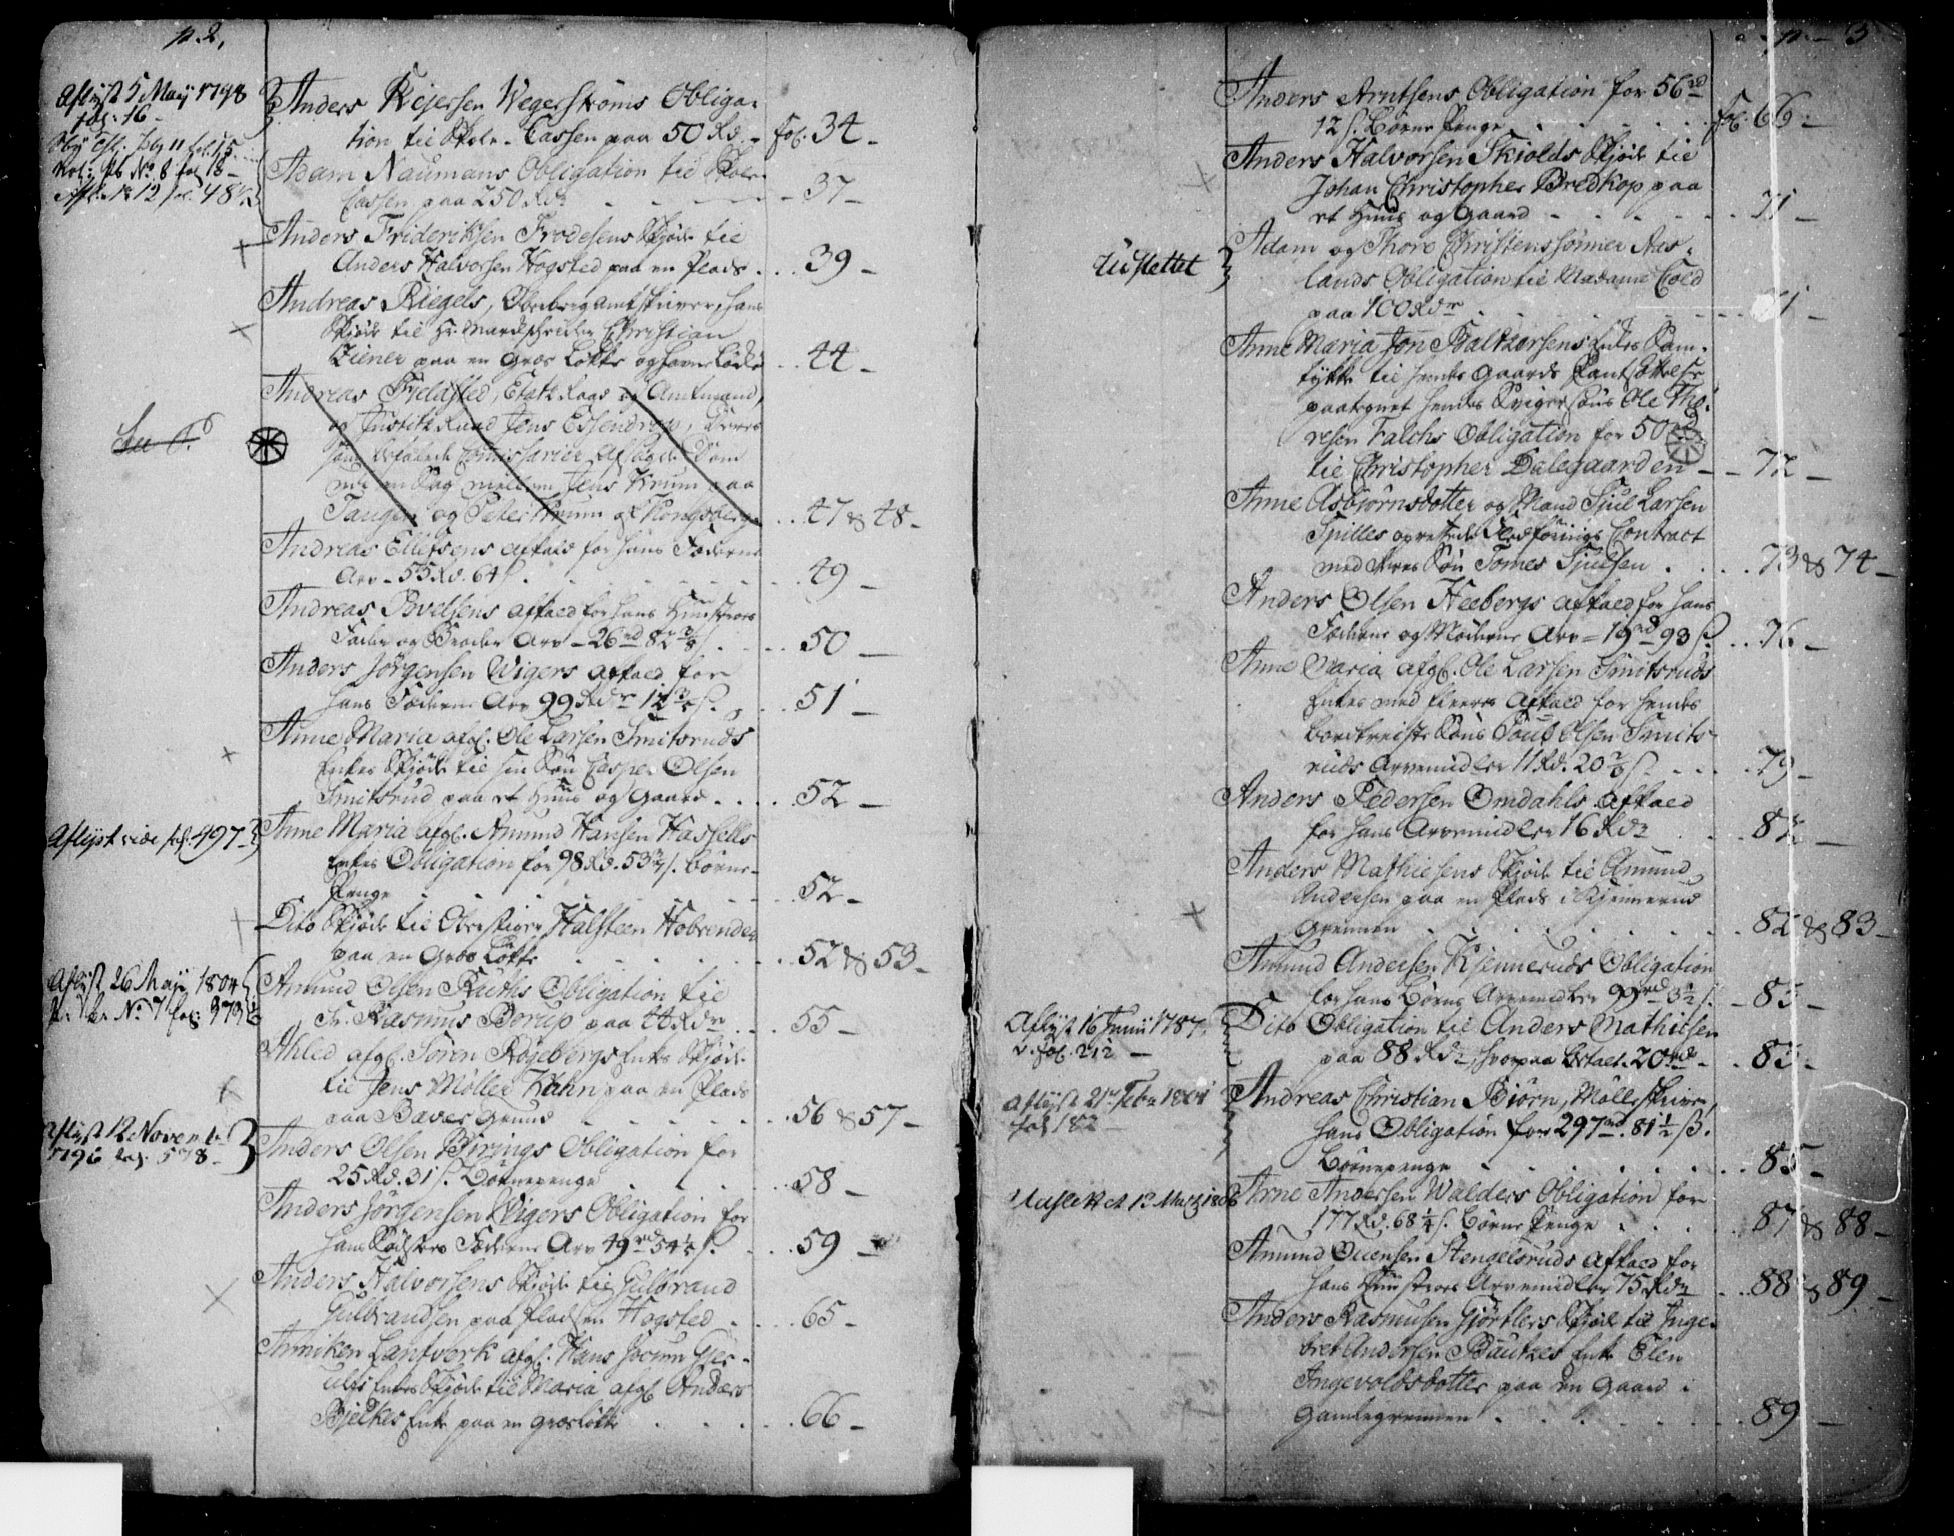 p. 2,
Aflyst 5 Maij 1798
fol: 16 -
No 8 fol 18 -
Anders Rejersen Wegerskoms Obliga-
tion til Skole-Cassen paa 50 Rd. - fol. 34 -
Adam Naumans Obligation til Skole-
Cassen paa 250 Rdr - 37 -
Anders Frideriksen Frodesens Skjøde til
Anders Halvorsen Hogsted paa en Plads . . . 39 -
Andreas Riegels, Oberbergamtskriver, hans
Skjøde til Hr. Markscheider Christian
Ziener paa en Græs Løkke og Lade . . 44 -
Andreas Fieldsted, Etats Raad og Amtmand,
og Justits Raad Jens Essendrop, Deres
som Commissarier Afsagde Dom
udi en Sag mellem Jens Krum paa
Tangen og Peter Krum af Kongsberg . . 47 & 48 -
Andreas Ellefsens Afkald for hans Fæderne
Arv - 55 Rd. 64 ß. . . 49 -
Andreas Povelsens Afkald for hans Hustroes
Fader og Broder Arv - 26 rd 82 ß. . . 50 -
Anders Jørgensen Wigers Afkald for
hans Fæderne Arv 99 Rdr 12 ß. . . 51 -
Anne Maria afgl. Ole Larsen Smitsruds
Enkes Skjøde til sin Søn Casper Olsen
Smitsrud paa et Huus og Gaard . . . 52 -
Aflyst vide fol. 497 -
Anne Maria afgl. Amund Hansen Hassells
Enkes Obligation for 98 Rd. 53 ß. Børne-
Penge . . . 52 -
Dito Skjøde til Oberstiger Halsteen Hobrender
paa en Græs Løkke . . . 52 & 53 -
Aflyst 26 Maji 1804
No 7 fol: 373
Amund Olsen Ruths Obligation til
Sr. Rasmus Borup paa 44 Rdr . . . 55 -
Ahled afgl. Søren Røjebergs Enkes Skjøde
til Jens Møller Hahn paa en Plads
paa Baves Grund . . . 56 & 57 -
Aflyst 12 Novembr
1796 fol. 578 -
Anders Olsen Birings Obligation for
25 Rd. 31 ß. Børnepenge . . . 58 -
Anders Jørgensen Wigers Obligation for
hans Fæderne Arv 49 rd 54 ß. . . 59 -
Anders Halvorsens Skjøde til Gulbrand
Gulbrandsen paa Pladsen Hogsted . . . 65 -
Anniken Lantverk afgl. Hans Jocum
Enkes Skjøde til Maria afgl. Anders
Bjelkes Enke paa en Græsløkke . . . 66 -
p. - 3
Anders Arntsens Obligation for 56 rd
12 ß. Børne Penge . . . fol. 66 -
Anders Halvorsen Skiolds Skjøde til
Johan Christopher Bredkop paa
et Huus og Gaard - . . . 71 -
Udslettet
Adam og Thore Christenssønner Aas-
lands Obligation til Madame Cold
paa 100 Rdr . . . 71 -
Anne Maria Jon Baltzersens Enkes Sam-
tykke til hendes Gaards Pantsættelse
paategnet hendes Svigersøns Ole Tho-
resen Falchs Obligation for 50 rd
til Christopher Dalegaarden - - 72 -
Anne Asbiørnsdotter og Mand Sjul Larsen
Spilles oprettede Fledførings Contract
med deres Søn Tomes Sjulsen . . . 73 & 74 -
Anders Olsen Heebergs Afkald for hans
Fæderne og Møderne Arv = 19 rd 93 ß. . . 76 -
Anne Maria afgl. Ole Larsen Smitsruds
Enkes med fleeres Afkald for hendes
bortreiste Søns Poul Olsen Smits-
ruds Arvemidler 11 Rd. 20 ß. - . . . 79 -
Anders Pedersen Omdahls Afkald
for hans Arvemidler 16 Rdr . . . 82 -
Anders Mathiesens Skjøde til Amund
Andersen paa en Plads i Kjennerud
Grennen . . . 82 & 83 -
Amund Andersen Kjenneruds Obligation
for hans Børns Arvemidler 99 rd 3 1/2 ß. - 83 -
Aflyst 16 Junii 1787
v. fol. 212 -
Dito Obligation til Anders Mathiesen
paa 88 Rdr, hvorpaa betalt 20 rd . 83 -
Aflyst 21 Febr 1801
fol 182 -
Andreas Christian Biørn, Mølleskriver,
hans Obligation for 297 rd. 81 1/2 ß.
Børnepenge . . . 85 -
Udslettet 1 Martz 1806
Arne Andersen Walders Obligation for
177 Rd. 68 1/4 ß. Børne Penge . . . 87 & 88 -
Amund Ouensen Stengelsruds Afkald for
hans Hustroes Arvemidler 75 Rdr . . . 88 & 89 -
Anders Rasmusen Gjørtlers Skjøde til Inge-
bret Andersen Bautzes Enke Elen
Ingevoldsdotter paa en Gaard i
Gamlegrennen . . . 89 -